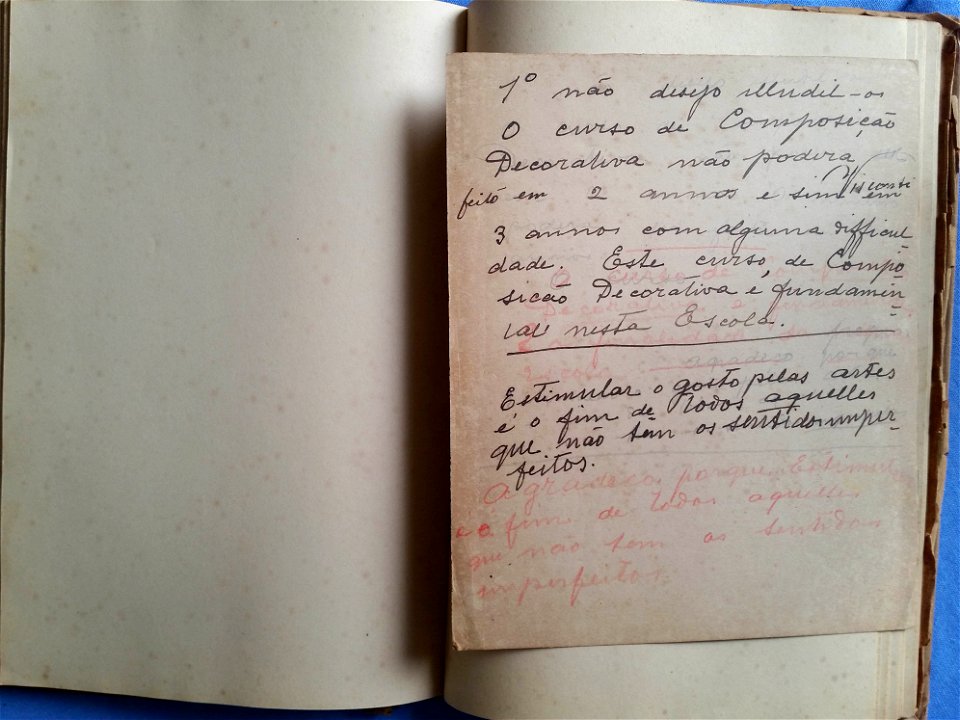 1º não desejo illudil-os
O curso de Composição
Decorativa não podera
feito em 2 annos e sim em
3 annos com alguma difficul-
dade. Este curso de Compo
sicão Decorativa é fundamen-
tal nesta Escola.
O curso de
Decorativa
Escola. agradeço porque
Estimular o gosto pelas artes
é o fim de todos aquelles
que não têm os sentidos imper-
feitos.
Agradeço porque Estimular
é o fim de todos aquelles
que não tem os sentidos
imperfeitos.